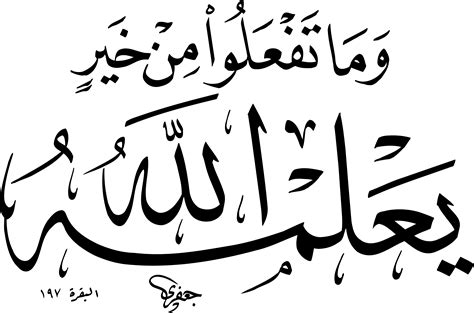 وَمَا تَفْعَلُوا۟ مِنْ خَيْرٍ
يَعْلَمْهُ اللّٰهُ
جعفری
البقرة ١٩٧